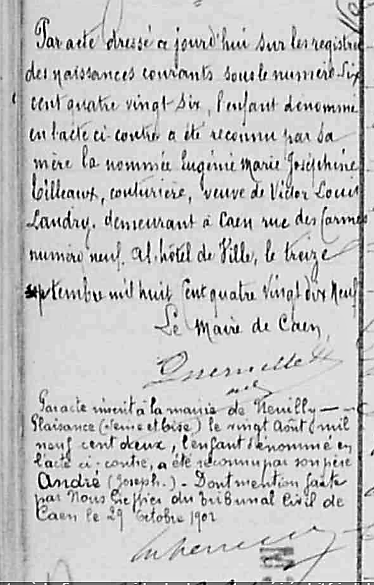 Par acte dressé ce jourd'hui sur les registres
des naissances courants sous le numéro six
cent quatre vingt six, l'enfant dénommé
en l'acte ci-contre a été reconnu par sa
mère la nommée Eugénie Marie Joséphine
Tilleaux, couturière, veuve de Victor Louis
Landry, demeurant à Caen rue des Carmes
numéro neuf. A l'hôtel de Ville, le treize
septembre mil huit cent quatre vingt dix neuf
Le Maire de Caen,
Par acte inscrit à la mairie de Neuilly-
Plaisance (Seine et Oise) le vingt Août mil
neuf cent deux, l'enfant dénommé en
l'acte ci-contre, a été reconnu par son père
André (Joseph.) - Dont mention faite
par Nous Greffier du Tribunal Civil de
Caen le 29 Octobre 1902